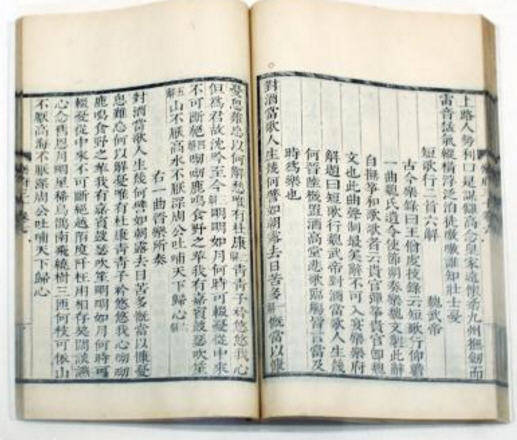 上路人勢利是謀高念皇家遠懷九州撫劒而
雷音猛氣縱橫浮徒嗷嗷誰知壯士憂
短歌行二首六解　魏武帝
古今樂錄曰王僧虔技錄云短歌行仰瞻
一曲魏氏遺令使節朔奏樂魏文製此辭
自撫箏和歌歌者云貴官彈箏貴官卽魏
文也此曲聲制最美辭不可入宴樂樂府
解題曰短歌行魏武帝對酒當歌人生幾
何晉陸機置酒高堂悲歌臨觴皆言當及
時爲樂也
對酒當歌人生幾何譬如朝露去日苦多解慨當以慷
憂思難忘以何解愁唯有杜康解青青子衿悠悠我心
但爲君故沈吟至今解明明如月何時可輟憂從中來
不可斷絕解呦呦鹿鳴食野之苹我有嘉賓鼓瑟吹笙
五解山不厭高水不厭深周公吐哺天下歸心解
右一曲晉樂所奏
對酒當歌人生幾何譬如朝露去日苦多慨當以慷憂
思難忘何以解憂唯有杜康青青子衿悠悠我心呦呦
鹿鳴食野之苹我有嘉賓鼓瑟吹笙明明如月何時可
輟憂從中來不可斷絕越陌度阡枉用相存契闊談讌
心念舊恩月明星稀烏鵲南飛繞樹三匝何枝可依山
不厭高海不厭深周公吐哺天下歸心